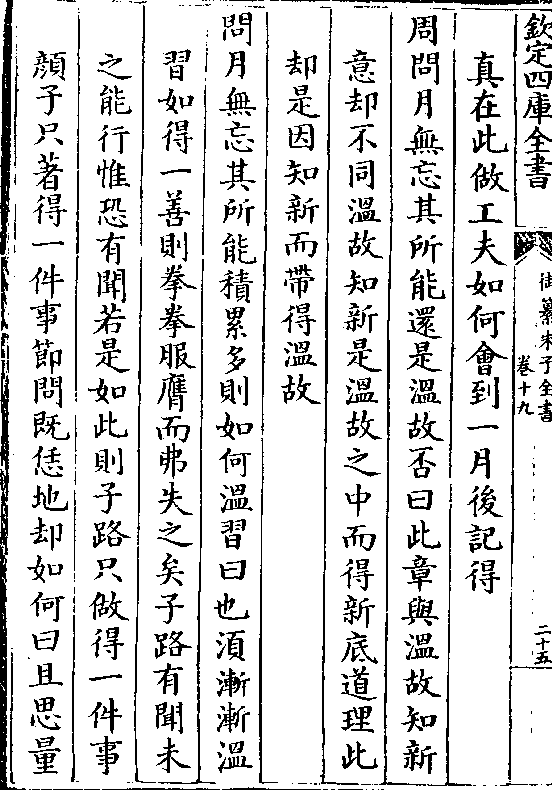 欽定四庫全書
御纂朱子全書
卷十九
二十五
真在此做工夫如何會到一月後記得
周問月無忘其所能還是溫故否曰此章與溫故知新
意却不同溫故知新是溫故之中而得新底道理此
却是因知新而帶得溫故
問月無忘其所能積累多則如何溫習曰也湏漸漸溫
習如得一善則拳拳服膺而弗失之矣子路有聞未
之能行惟恐有聞若是如此則子路只做得一件事
顔子只著得一件事節問既恁地却如何曰且思量